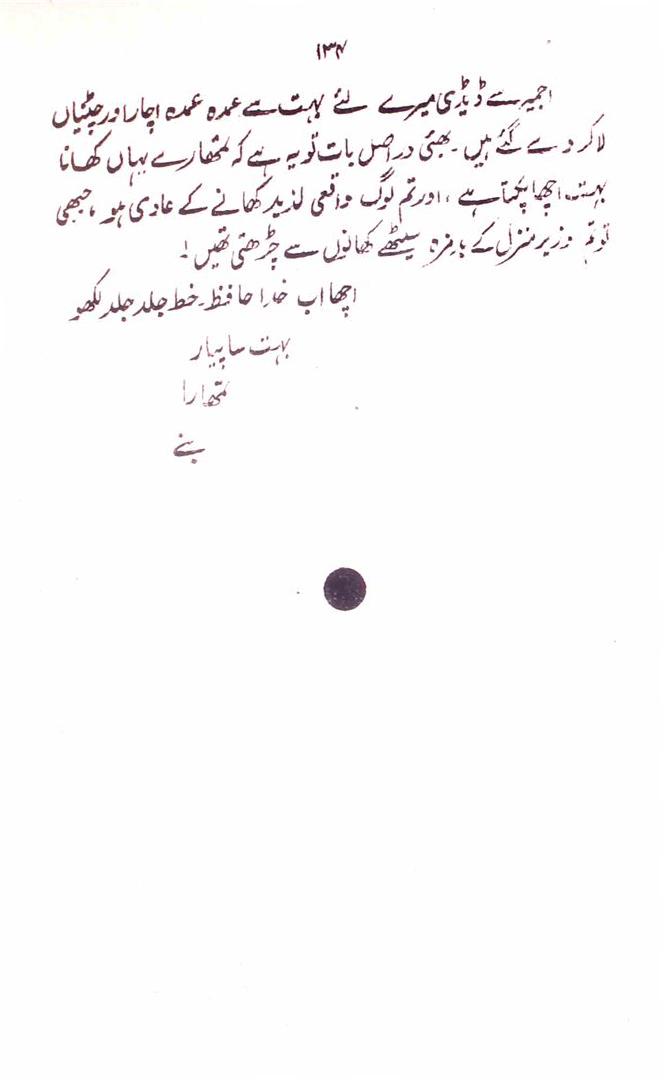 ۱۳۴
اجمیر سے ڈیڈی میرے لئے بہت سے عمدہ عمدہ اچار اور چٹنیاں
لا کر دے گئے ہیں۔ بھئی دراصل بات تو یہ ہے کہ تمھارے یہاں کھانا
بہت اچھا پکتا ہے، اور تم لوگ واقعی لذیذ کھانے کے عادی ہو، جبھی
تو تم وزیر منزل کے بدمزہ سیٹھے کھانوں سے چڑھتی تھیں!
اچھا اب خدا حافظ۔ خط جلد جلد لکھو
بہت سا پیار
تمھارا
بنے